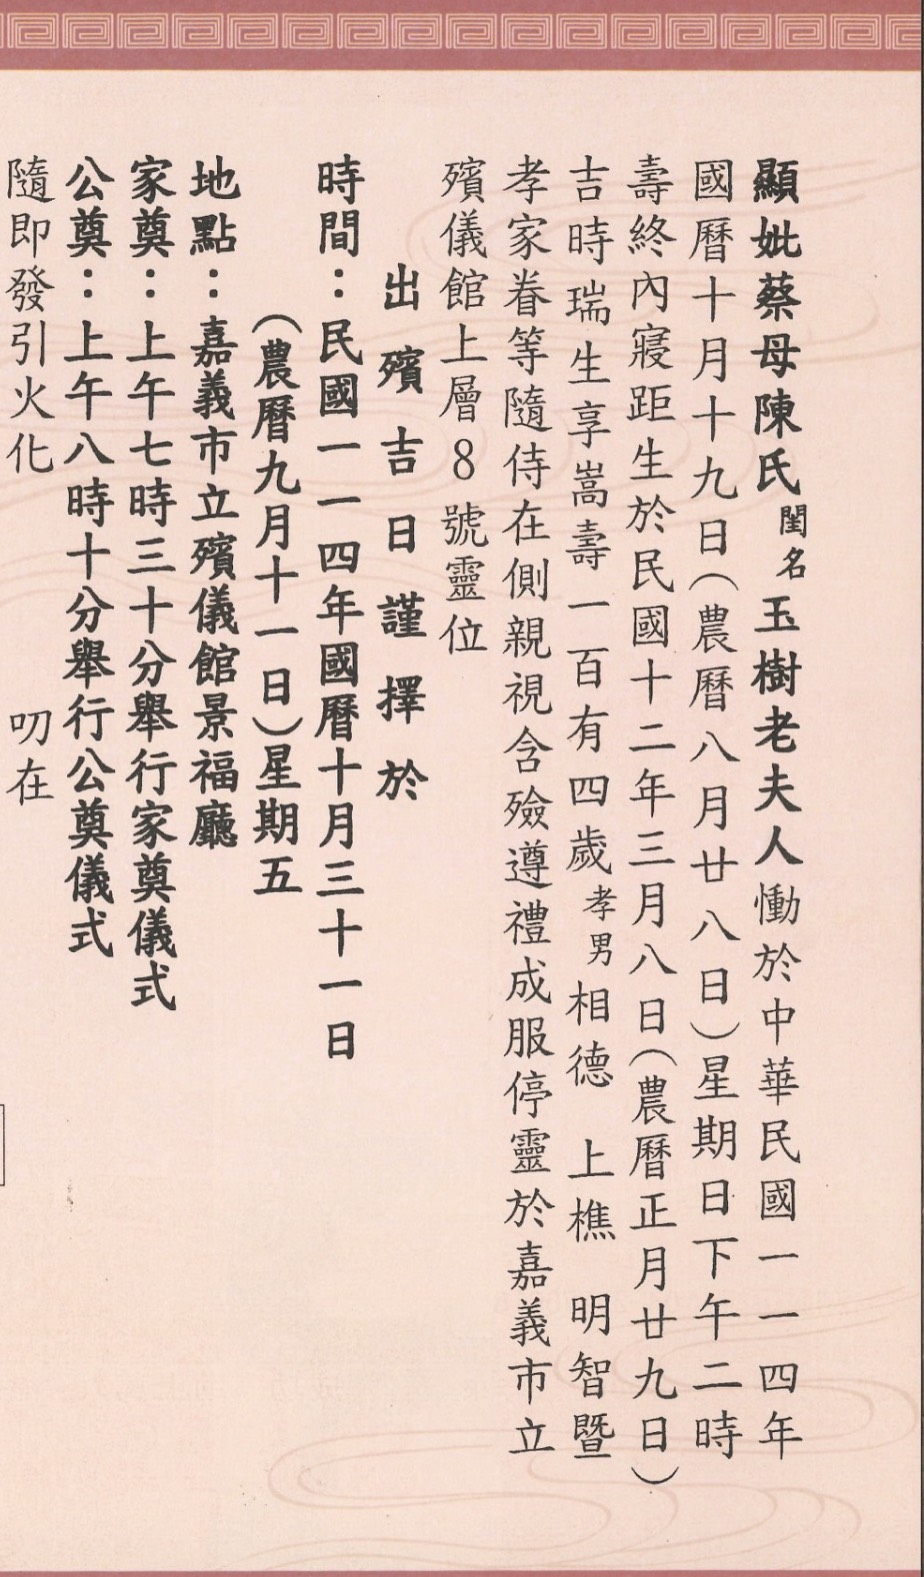 顯妣蔡母陳氏閨名玉樹老夫人慟於中華民國一一四年
國曆十月十九日(農曆八月廿八日)星期日下午二時
壽終內寢距生於民國十二年三月八日(農曆正月廿九日)
吉時瑞生享嵩壽一百有四歲孝男相德 上樵 明智暨
孝家眷等隨侍在側親視含殮遵禮成服停靈於嘉義市立
殯儀館上層8號靈位
出殯吉日謹擇於
時間：民國一一四年國曆十月三十一日
(農曆九月十一日)星期五
地點：嘉義市立殯儀館景福廳
家奠：上午七時三十分舉行家奠儀式
公奠：上午八時十分舉行公奠儀式
隨即發引火化 叨在